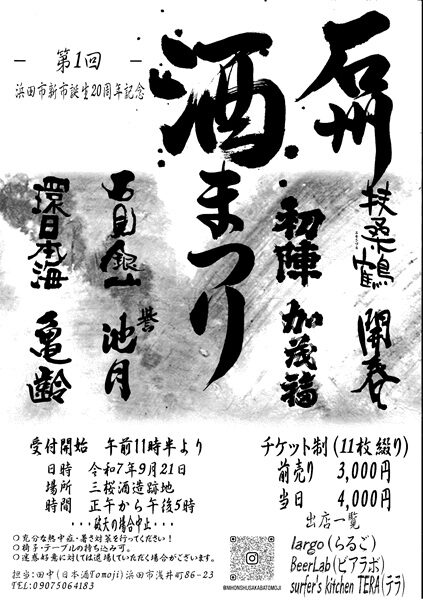 第1回
浜田市新市誕生20周年記念
石州
酒まつり
扶桑鶴
開春
初陣
加茂福
石見銀山
誉池月
環日本海
亀齢
受付開始　午前11時半より
日時　令和7年9月21日
場所　三桜酒造跡地
時間　正午から午後5時
・・・破天の場合中止・・・
○充分な熱中症・暑さ対策を行ってください！
○椅子・テーブルの持ち込み可。
○迷惑好意に対しては退場していただく場合がございます。
担当:田中(日本酒Tomoji)浜田市浅井町86-23
TEL:09075064183
チケット制(11枚綴り)
前売り　3,000円
当日　4,000円
出店一覧
largo(らるご)
BeerLab(ビアラボ)
surfer's kitchen TERA(テラ)
@NIHONSHUSAKABATOMOJI